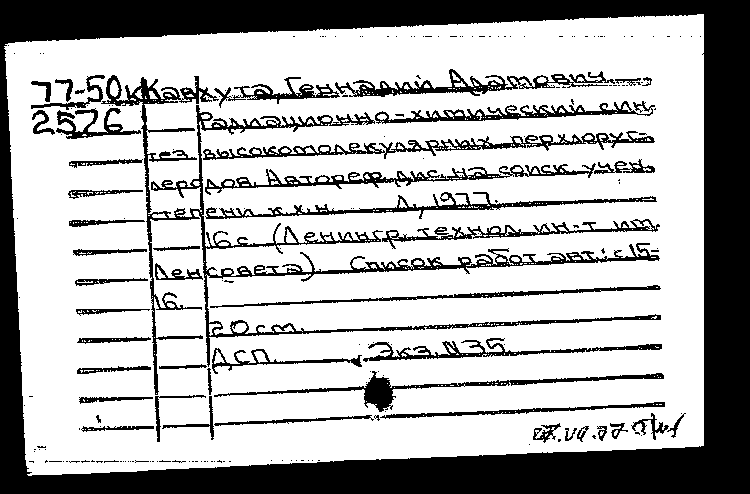 77-50к Кавхута, Геннадий Адамович
2576 Радиационно-химический син-
тез высокомолекулярных перхлоруг-
леродов. Автореф. дис. на соиск. учен.
степени к.х.н. Л., 1977.
16 с. (Ленингр. технол. ин-т им.
Ленсовета). Список работ авт.: с.15-
16.
20 см.
ДСП. Экз. N 35.